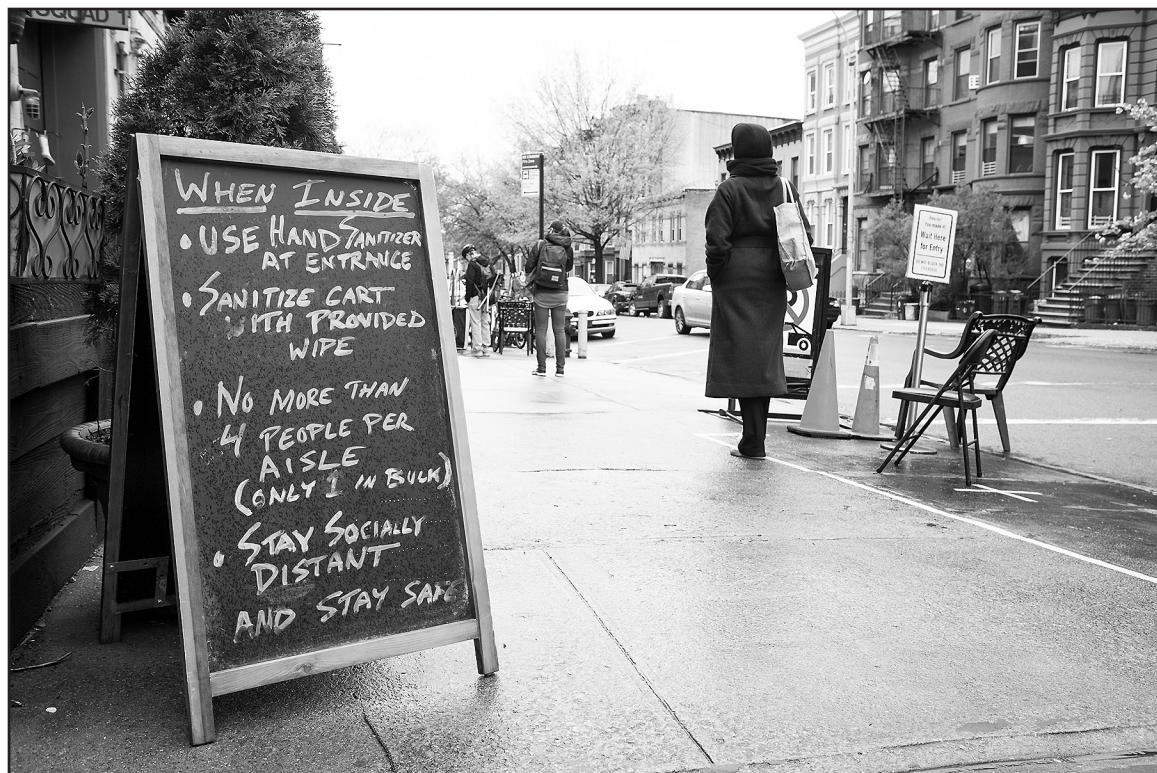 WHEN INSIDE
• USE HAND SANITIZER
AT ENTRANCE
• SANITIZE CART
WITH PROVIDED
WIPE
• NO MORE THAN
4 PEOPLE PER
AISLE
(ONLY 1 IN BULK)
• STAY SOCIALLY
DISTANT
AND STAY SAFE
Wait Here
for Entry